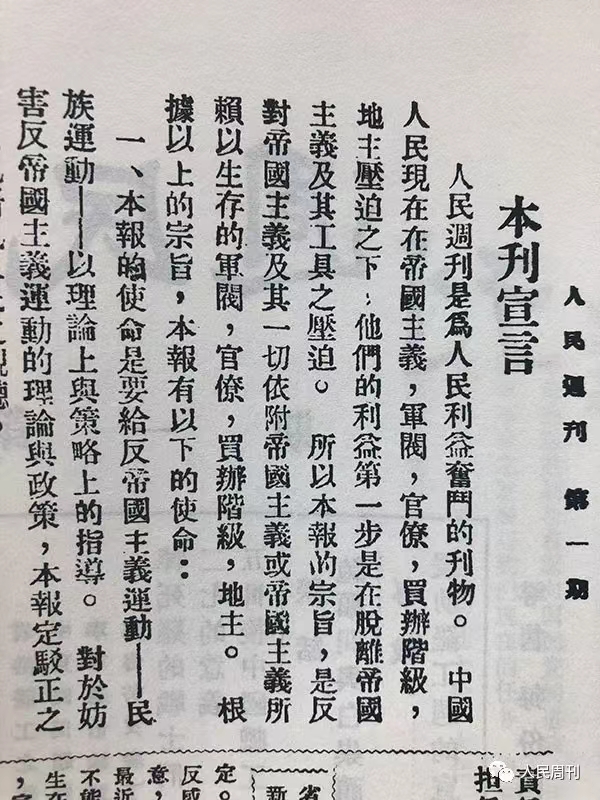 人民週刊 第一期
本刊宣言
人民週刊是爲人民利益奮鬥的刊物。 中國
人民現在在帝國主義，軍閥，官僚，買辦階級，
地主壓迫之下；他們的利益第一步是在脫離帝國
主義及其工具之壓迫。 所以本報的宗旨，是反
對帝國主義及其一切依附帝國主義或帝國主義所
賴以生存的軍閥，官僚，買辦階級，地主。 根
據以上的宗旨，本報有以下的使命：
一、本報的使命是要給反帝國主義運動——民
族運動——以理論上與策略上的指導。 對於妨
害反帝國主義運動的理論與政策，本報定駁正之
担
省
新
定。
反感
意，
最近
不能
生在
人民周刊